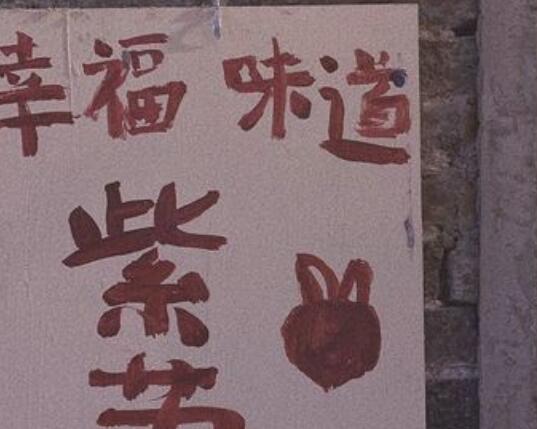 幸福 味道
紫